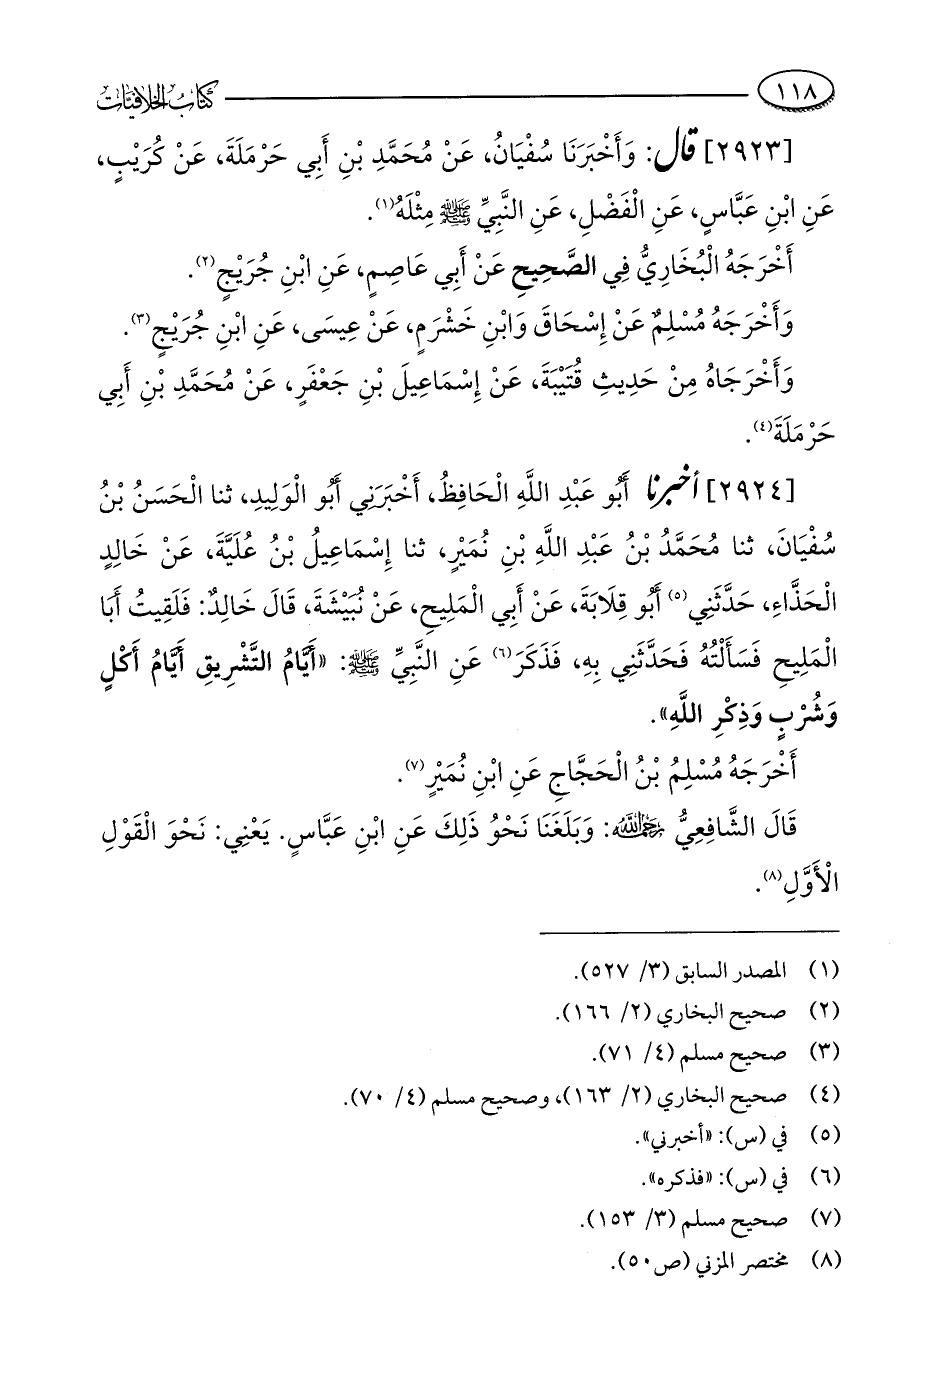 ١١٨
كتاب الخلافيات
[٢٩٢٣] قال: وَأَخْبَرَنَا سُفْيَانُ، عَنْ مُحَمَّدِ بْنِ أَبِي حَرْمَلَةَ، عَنْ كُرَيْبٍ،
عَنِ ابْنِ عَبَّاسٍ، عَنِ الْفَضْلِ، عَنِ النَّبِيِّ ﷺ مِثْلَهُ(١).
أَخْرَجَهُ الْبُخَارِيُّ فِي الصَّحِيحِ عَنْ أَبِي عَاصِمٍ، عَنِ ابْنِ جُرَيْجٍ(٢).
وَأَخْرَجَهُ مُسْلِمٌ عَنْ إِسْحَاقَ وَابْنِ خَشْرَمٍ، عَنْ عِيسَى، عَنِ ابْنِ جُرَيْجٍ(٣).
وَأَخْرَجَاهُ مِنْ حَدِيثِ قُتَيْبَةَ، عَنْ إِسْمَاعِيلَ بْنِ جَعْفَرٍ، عَنْ مُحَمَّدِ بْنِ أَبِي
حَرْمَلَةَ(٤).
[٢٩٢٤] أخبرنا أَبُو عَبْدِ اللَّهِ الْحَافِظُ، أَخْبَرَنِي أَبُو الْوَلِيدِ، ثنا الْحَسَنُ بْنُ
سُفْيَانَ، ثنا مُحَمَّدُ بْنُ عَبْدِ اللَّهِ بْنِ نُمَيْرٍ، ثنا إِسْمَاعِيلُ بْنُ عُلَيَّةَ، عَنْ خَالِدٍ
الْحَذَّاءِ، حَدَّثَنِي(٥) أَبُو قِلَابَةَ، عَنْ أَبِي الْمَلِيحِ، عَنْ نُبَيْشَةَ، قَالَ خَالِدٌ: فَلَقِيتُ أَبَا
الْمَلِيحِ فَسَأَلْتُهُ فَحَدَّثَنِي بِهِ، فَذَكَرَ(٦) عَنِ النَّبِيِّ ﷺ: «أَيَّامُ التَّشْرِيقِ أَيَّامُ أَكْلٍ
وَشُرْبٍ وَذِكْرِ اللَّهِ».
أَخْرَجَهُ مُسْلِمُ بْنُ الْحَجَّاجِ عَنِ ابْنِ نُمَيْرٍ(٧).
قَالَ الشَّافِعِيُّ رحمه الله: وَبَلَغَنَا نَحْوُ ذَلِكَ عَنِ ابْنِ عَبَّاسٍ. يَعْنِي: نَحْوَ الْقَوْلِ
الْأَوَّلِ(٨).
(١) المصدر السابق (٣/ ٥٢٧).
(٢) صحيح البخاري (٢/ ١٦٦).
(٣) صحيح مسلم (٤/ ٧١).
(٤) صحيح البخاري (٢/ ١٦٣)، وصحيح مسلم (٤/ ٧٠).
(٥) في (س): «أخبرني».
(٦) في (س): «فذكره».
(٧) صحيح مسلم (٣/ ١٥٣).
(٨) مختصر المزني (ص٥٠).